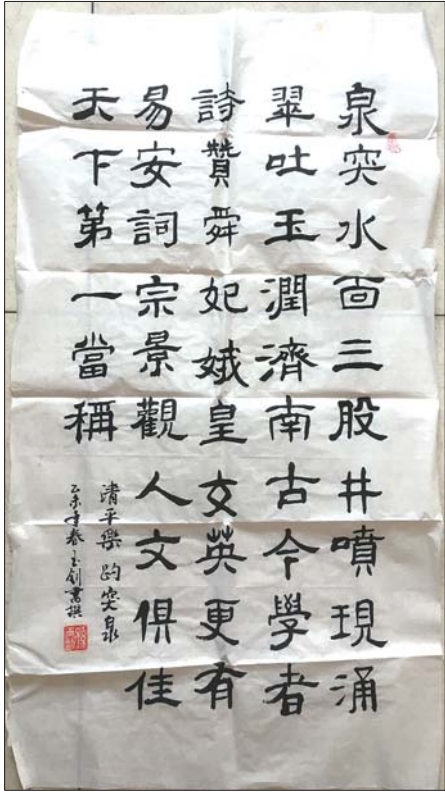 泉突水靣三股井噴現涌
翠吐玉潤濟南古今學者
詩贊舜妃娥皇女英更有
易安詞宗景觀人文俱佳
天下第一當稱
清平樂 趵突泉
乙未年春 玉書撰